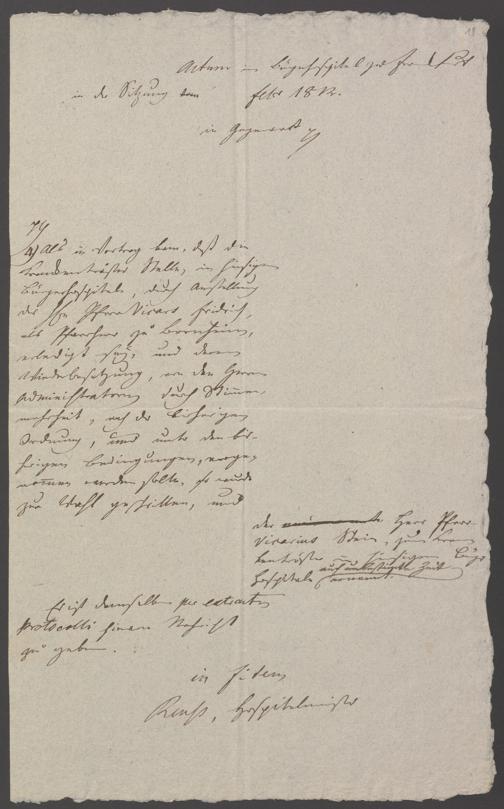 18
Actum im Bürgerhospital zu Frankfurt
in der Sitzung vom Febr 1812.
in Gegenwart
4) Als in Vortrag kam, daß die
Krankentröster Stelle, im hiesigen
Bürgerhospitale, durch Anstellung
des Hrn Pfarr Vicars Fridrich,
als Pfarrherr zu Bornheim,
erledigt sey, und deren
Wiederbesetzung, von den Herrn
Administratoren durch Stimmen-
mehrheit, nach der bisherigen
Ordnung, und unter den bis-
herigen Bedingungen, vorge-
nommen werden sollte, so wurde
zur Wahl geschritten, und
der Herr Pfarr
Vicarius Stein, zum Kran-
kentröster im hiesigen Bürger
Hospitale auf unbestimmte Zeit
ernannt.
Es ist demselben per extractum
protocolli hievon Nachricht
zu geben.
in fidem
Reuß, Hospitalmeister